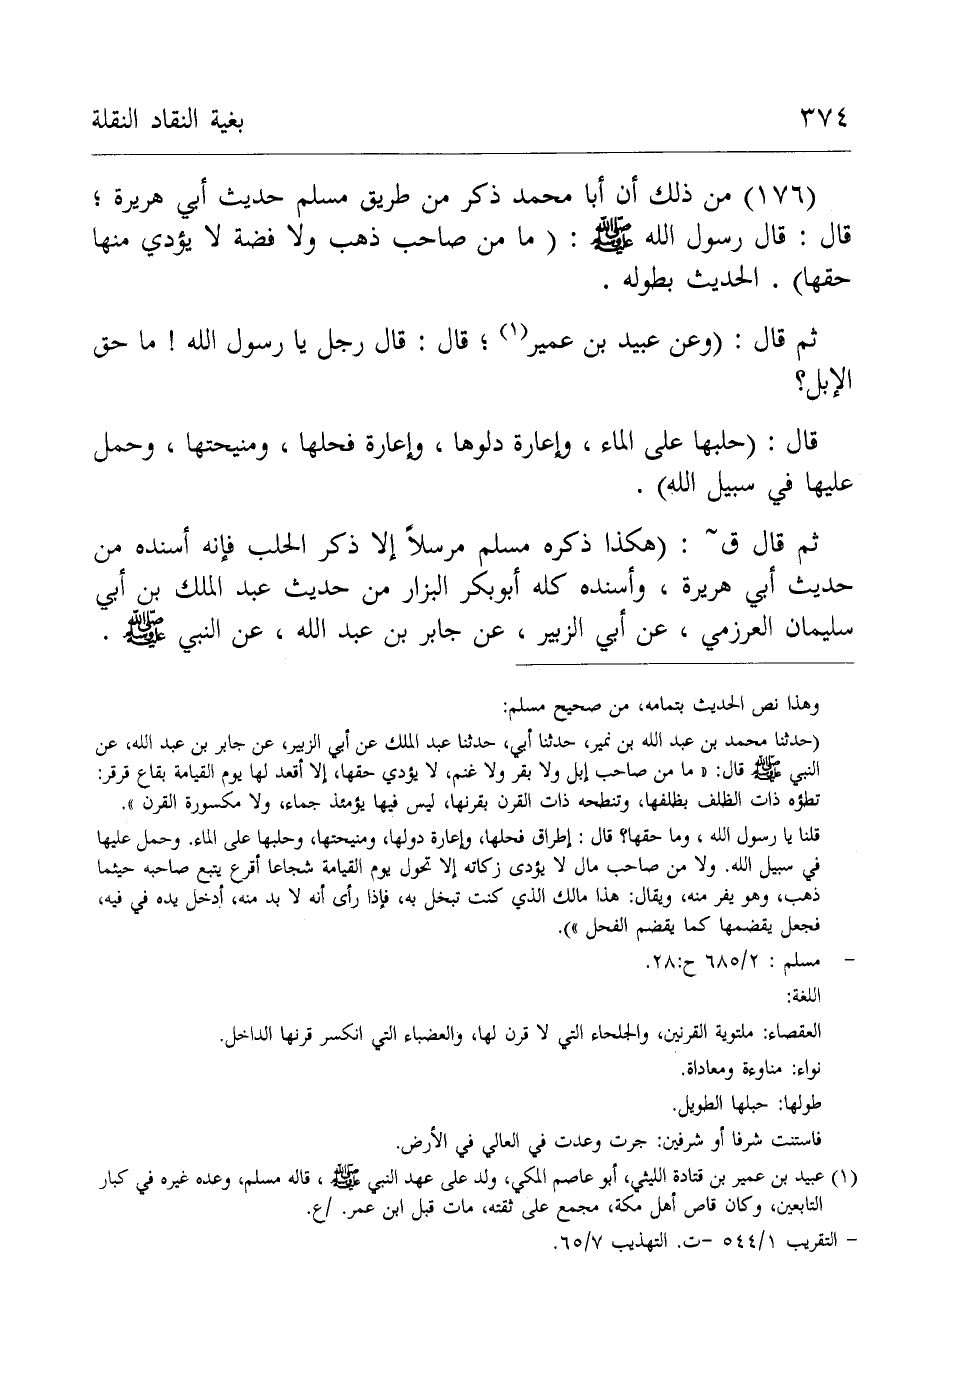 ٣٧٤ بغية النقاد النقلة
(١٧٦) من ذلك أن أبا محمد ذكر من طريق مسلم حديث أبي هريرة ؛
قال : قال رسول الله ﷺ : ( ما من صاحب ذهب ولا فضة لا يؤدي منها
حقها) . الحديث بطوله .
ثم قال : (وعن عبيد بن عمير(١) ؛ قال : قال رجل يا رسول الله ! ما حق
الإبل؟
قال : (حلبها على الماء ، وإعارة دلوها ، وإعارة فحلها ، ومنيحتها ، وحمل
عليها في سبيل الله) .
ثم قال ق~ : (هكذا ذكره مسلم مرسلاً إلا ذكر الحلب فإنه أسنده من
حديث أبي هريرة ، وأسنده كله أبوبكر البزار من حديث عبد الملك بن أبي
سليمان العرزمي ، عن أبي الزبير ، عن جابر بن عبد الله ، عن النبي ﷺ .
وهذا نص الحديث بتمامه، من صحيح مسلم:
(حدثنا محمد بن عبد الله بن نمير، حدثنا أبي، حدثنا عبد الملك عن أبي الزبير، عن جابر بن عبد الله، عن
النبي ﷺ قال: « ما من صاحب إبل ولا بقر ولا غنم، لا يؤدي حقها، إلا أقعد لها يوم القيامة بقاع قرقر:
تطؤه ذات الظلف بظلفها، وتنطحه ذات القرن بقرنها، ليس فيها يؤمئذ جماء، ولا مكسورة القرن ».
قلنا يا رسول الله ، وما حقها؟ قال : إطراق فحلها، وإعارة دولها، ومنيحتها، وحلبها على الماء. وحمل عليها
في سبيل الله. ولا من صاحب مال لا يؤدى زكاته إلا تحول يوم القيامة شجاعا أقرع يتبع صاحبه حيثما
ذهب، وهو يفر منه، ويقال: هذا مالك الذي كنت تبخل به، فإذا رأى أنه لا بد منه، أدخل يده في فيه،
فجعل يقضمها كما يقضم الفحل »).
– مسلم : ٦٨٥/٢ ح:٢٨.
اللغة:
العقصاء: ملتوية القرنين، والجلحاء التي لا قرن لها، والعضباء التي انكسر قرنها الداخل.
نواء: مناوءة ومعاداة.
طولها: حبلها الطويل.
فاستنت شرفا أو شرفين: جرت وعدت في العالي في الأرض.
(١) عبيد بن عمير بن قتادة الليثي، أبو عاصم المكي، ولد على عهد النبي ﷺ ، قاله مسلم، وعده غيره في كبار
التابعين، وكان قاص أهل مكة، مجمع على ثقته، مات قبل ابن عمر. /ع.
– التقريب ٥٤٤/١ –ت. التهذيب ٦٥/٧.